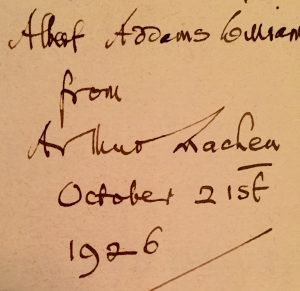 Albert Addams William
from
Arthur Machen
October 21st
1926